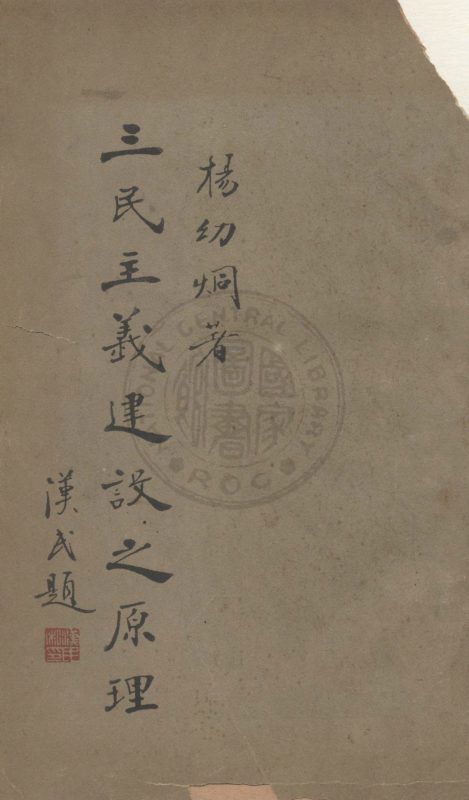 楊幼炯著
三民主義建設之原理
漢民題
NATIONAL CENTRAL LIBRARY
ROC
國家圖書館